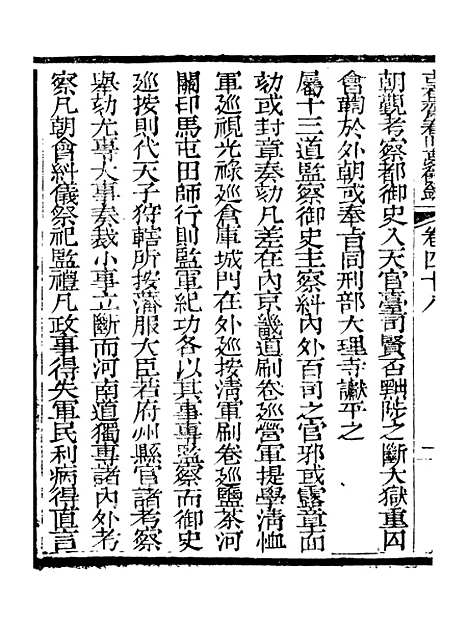 卷四十八
朝覲考察都御史入天官臺司賢否黜陟之斷大獄重囚
會鞫於外朝或奉旨同刑部大理寺讞平之
屬十三道監察御史主察糾內外百司之官邪或露章面
劾或封章奏劾凡差在內京畿道刷卷巡營軍提學清恤
軍巡視光祿巡倉庫城門在外巡按清軍刷卷巡鹽茶河
關印馬屯田師行則監軍紀功各以其事專監察而御史
巡按則代天子狩轄所按藩服大臣若府州縣官諸考察
舉劾尤專大事奏裁小事立斷而河南道獨專諸內外考
察凡朝會糾儀祭祀監禮凡政事得失軍民利病得直言